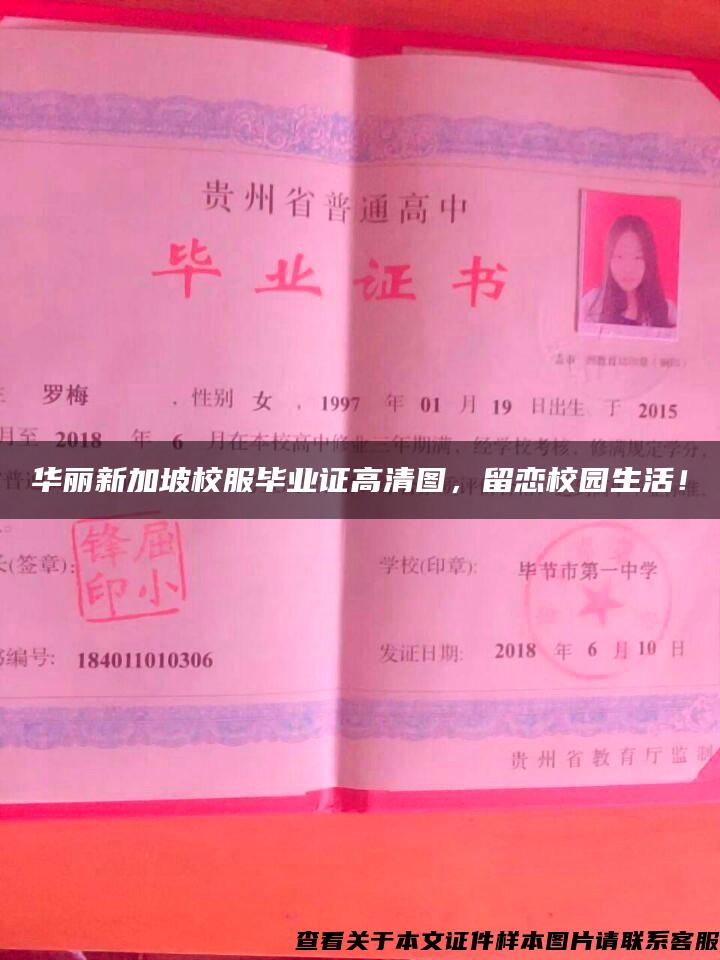 贵州省普通高中
毕业证书
罗梅 ，性别 女 ，1997 年 01 月 19 日出生，于 2015
月至 2018 年 6 月在本校高中修业三年期满，经学校考核，修满规定学分，
华丽新加坡校服毕业证高清图，留恋校园生活！
屈小锋印
长(签章):
学校(印章): 毕节市第一中学
书编号: 184011010306
发证日期: 2018 年 6 月 10 日
贵州省教育厅监制
查看关于本文证件样本图片请联系客服